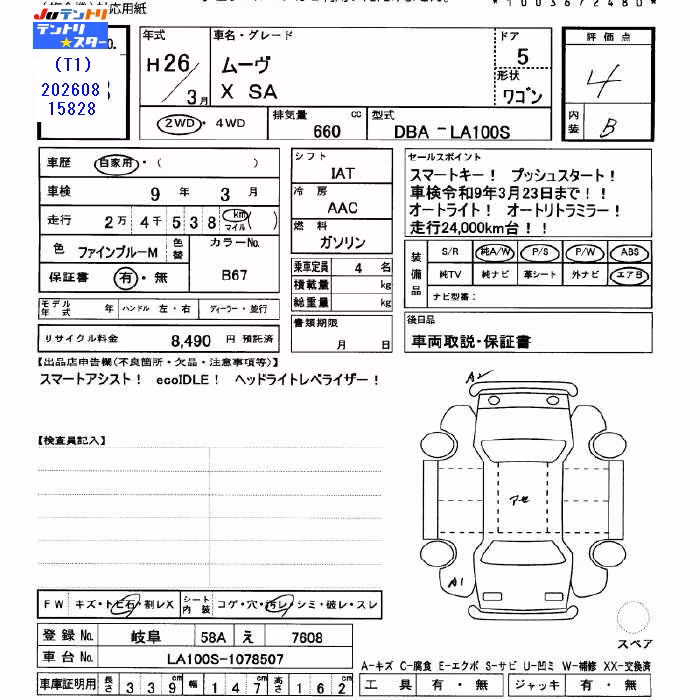 応用紙
*10036724807*
Juテントリ
テントリ
★スター
No.
(T1)
202608
15828
年式
車名・グレード
ドア
評価点
H26/3月
ムーヴ
X SA
5
形状
ワゴン
4
内装
B
2WD・4WD
排気量
660 cc
型式
DBA-LA100S
車歴 自家用・( )
車検 9年 3月
走行 2万4千538 km マイル ( )
色 ファインブルーM 色替 カラーNo. B67
保証書 有・無
モデル年式 年 ハンドル 左・右 ディーラー・並行
リサイクル料金 8,490 円 預託済
シフト
IAT
冷房
AAC
燃料
ガソリン
乗車定員 4 名
積載量 kg
総重量 kg
書類期限
月 日
セールスポイント
スマートキー! プッシュスタート!
車検令和9年3月23日まで!!
オートライト! オートリトラミラー!
走行24,000km台!!
装備品
S/R 純A/W P/S P/W ABS
純TV 純ナビ 革シート 外ナビ エアB
ナビ型番:
後日品
車両取説・保証書
【出品店申告欄(不良箇所・欠品・注意事項等)】
スマートアシスト! ecoIDLE! ヘッドライトレベライザー!
【検査員記入】
アセ
A1
FW キズ・トビ石・割レX シート内装 コゲ・穴・汚レ・シミ・破レ・スレ
登録No. 岐阜 58A え 7608
車台No. LA100S-1078507
車庫証明用 長さ 339cm 幅 147cm 高さ 162cm
スペア
A-キズ C-腐食 E-エクボ S-サビ U-凹ミ W-補修 XX-交換済
工具 有・無 ジャッキ 有・無